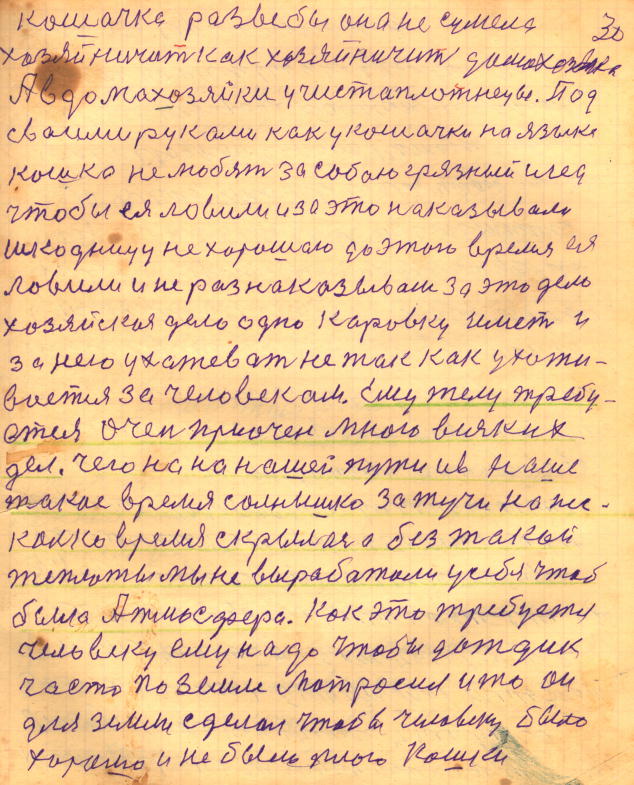 кошачка разве бы она не сумела 30
хозяйничат как хозяйничит домохозяка
А в домахозяйки учистаплотнецы. Под
сваими руками как у кошачки на языке
кошка не любят за собою грязный след
чтобы ея ловили и за это наказывали
шкодницу не хорошаю до этого время ея
ловили и не раз наказывали за это дело
хозяйская дело одно каровку имет и
за него ухажеват не так как ухажи-
вается за человекам. Ему телу требу-
ется очен приочен много всяких
дел. Чего на на нашей пути и в наше
такое время солнышко за тучи на не-
колко время скрылася а без такой
теплоты мы не вырабатали у себя чтоб
была Атмосфера. Как это требуется
человеку ему надо чтобы дождик
часто по земле мотросил и то он
для земли сделал чтобы человеку было
хорошо и не было плого кошки